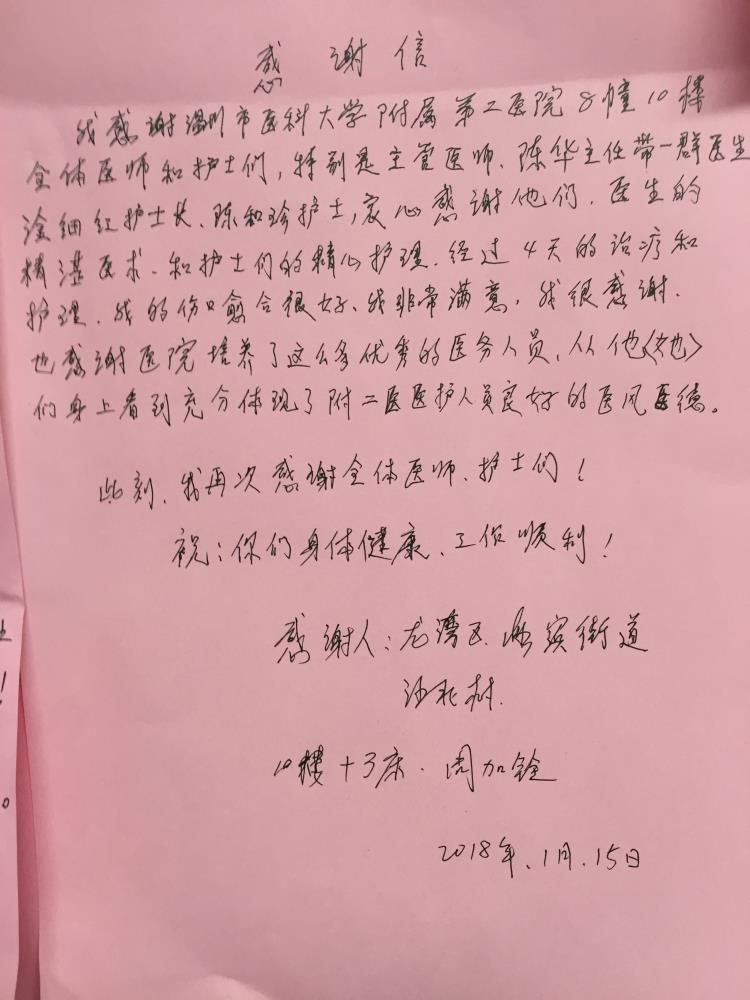 感谢信
我感谢温州市医科大学附属第二医院8幢10楼
全体医师和护士们，特别是主管医师、陈华主任带一群医生
涂细红护士长、陈和珍护士，衷心感谢他们、医生的
精湛医术、和护士们的精心护理、经过4天的治疗和
护理、我的伤口愈合很好、我非常满意，我很感谢、
也感谢医院培养了这么多优秀的医务人员、从他〈她〉
们身上看到充分体现了附二医医护人员良好的医风医德。
此刻、我再次感谢全体医师、护士们！
祝：你们身体健康、工作顺利！
感谢人：龙湾区 街道
沙北村
10楼+3床·周加铨
2018年、1月、15日